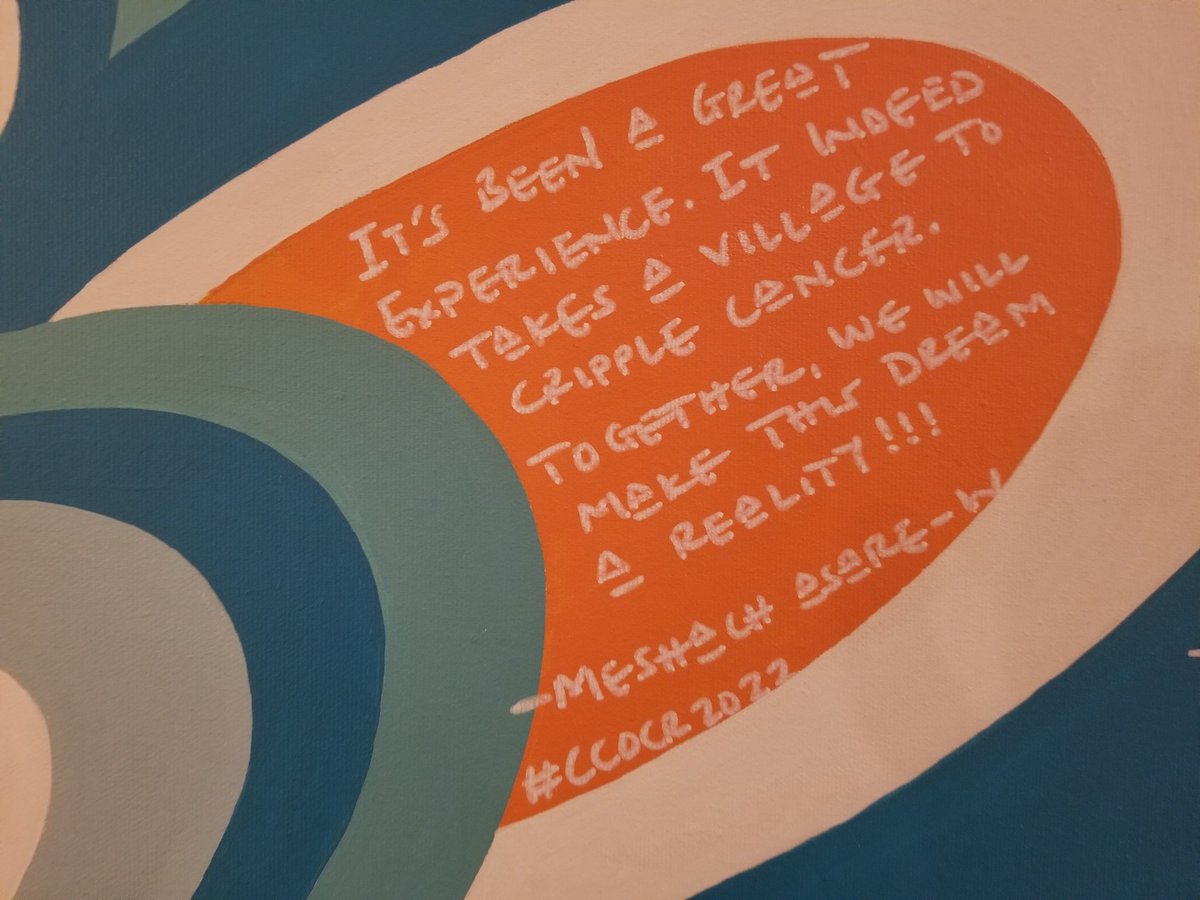 It's Been a Great
Experience. It indeed
takes a village to
cripple cancer.
Together, we will
make this dream
a reality!!!
-Meshach Asare-W
#CCOCR2022